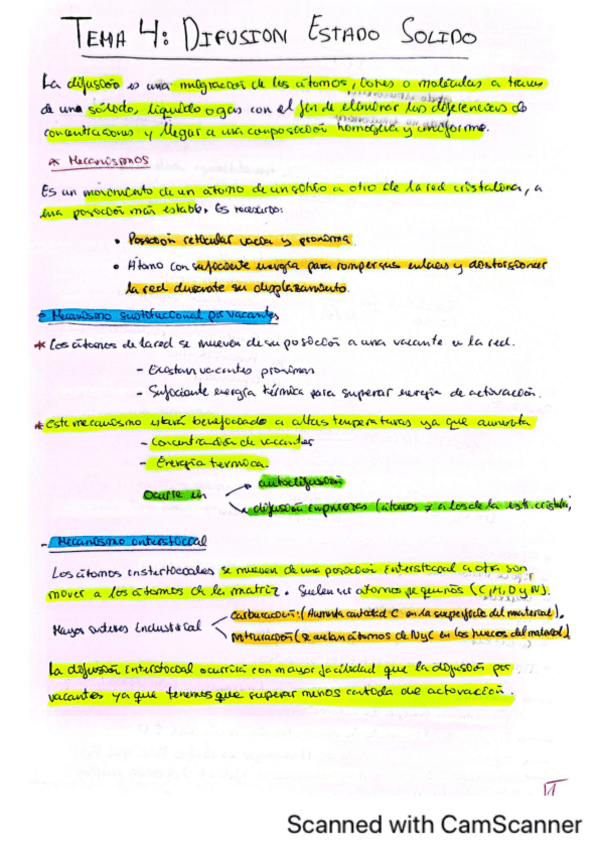 TEMA 4: DIFUSION ESTADO SOLIDO
La difusión es una migración de los átomos, iones o moléculas a traves
de una sólido, liquido o gas con el fin de eliminar las diferencias de
concentraciones y llegar a una composición homogénea y uniforme.
* Mecanismos
Es un movimiento de un átomo de un sólido a otro de la red cristalina, a
una posición más estable. Es necesario:
• Posición reticular vacía y proxima.
• Átomo con suficiente energía para romper sus enlaces y distorsionar
la red durante su desplazamiento.
Mecanismo sustitucional por vacantes
* Los átomos de la red se mueven de su posición a una vacante en la red.
- Existan vacantes proximas
- Suficiente energía térmica para superar energía de activación.
* Este mecanismo estará beneficiado a altas temperaturas ya que aumenta
- Concentración de vacantes
- Energía termica.
Ocurre en
autodifusión
difusión impurezas (átomos ≠ a los de la est. cristalina)
- Mecanismo intersticial
Los átomos instersticiales se mueven de una posicion intersticial a otra sin
mover a los átomos de la matriz. Suelen ser átomos pequeños (C, H, O y N).
Mayor interes industrial
carburación: (Aumenta cantidad C en la superficie del material).
nitruración (se anclan átomos de N y C en los huecos del material)
La difusión intersticial ocurrirá con mayor facilidad que la difusión por
vacantes ya que tenemos que superar menos de activación.
Scanned with CamScanner